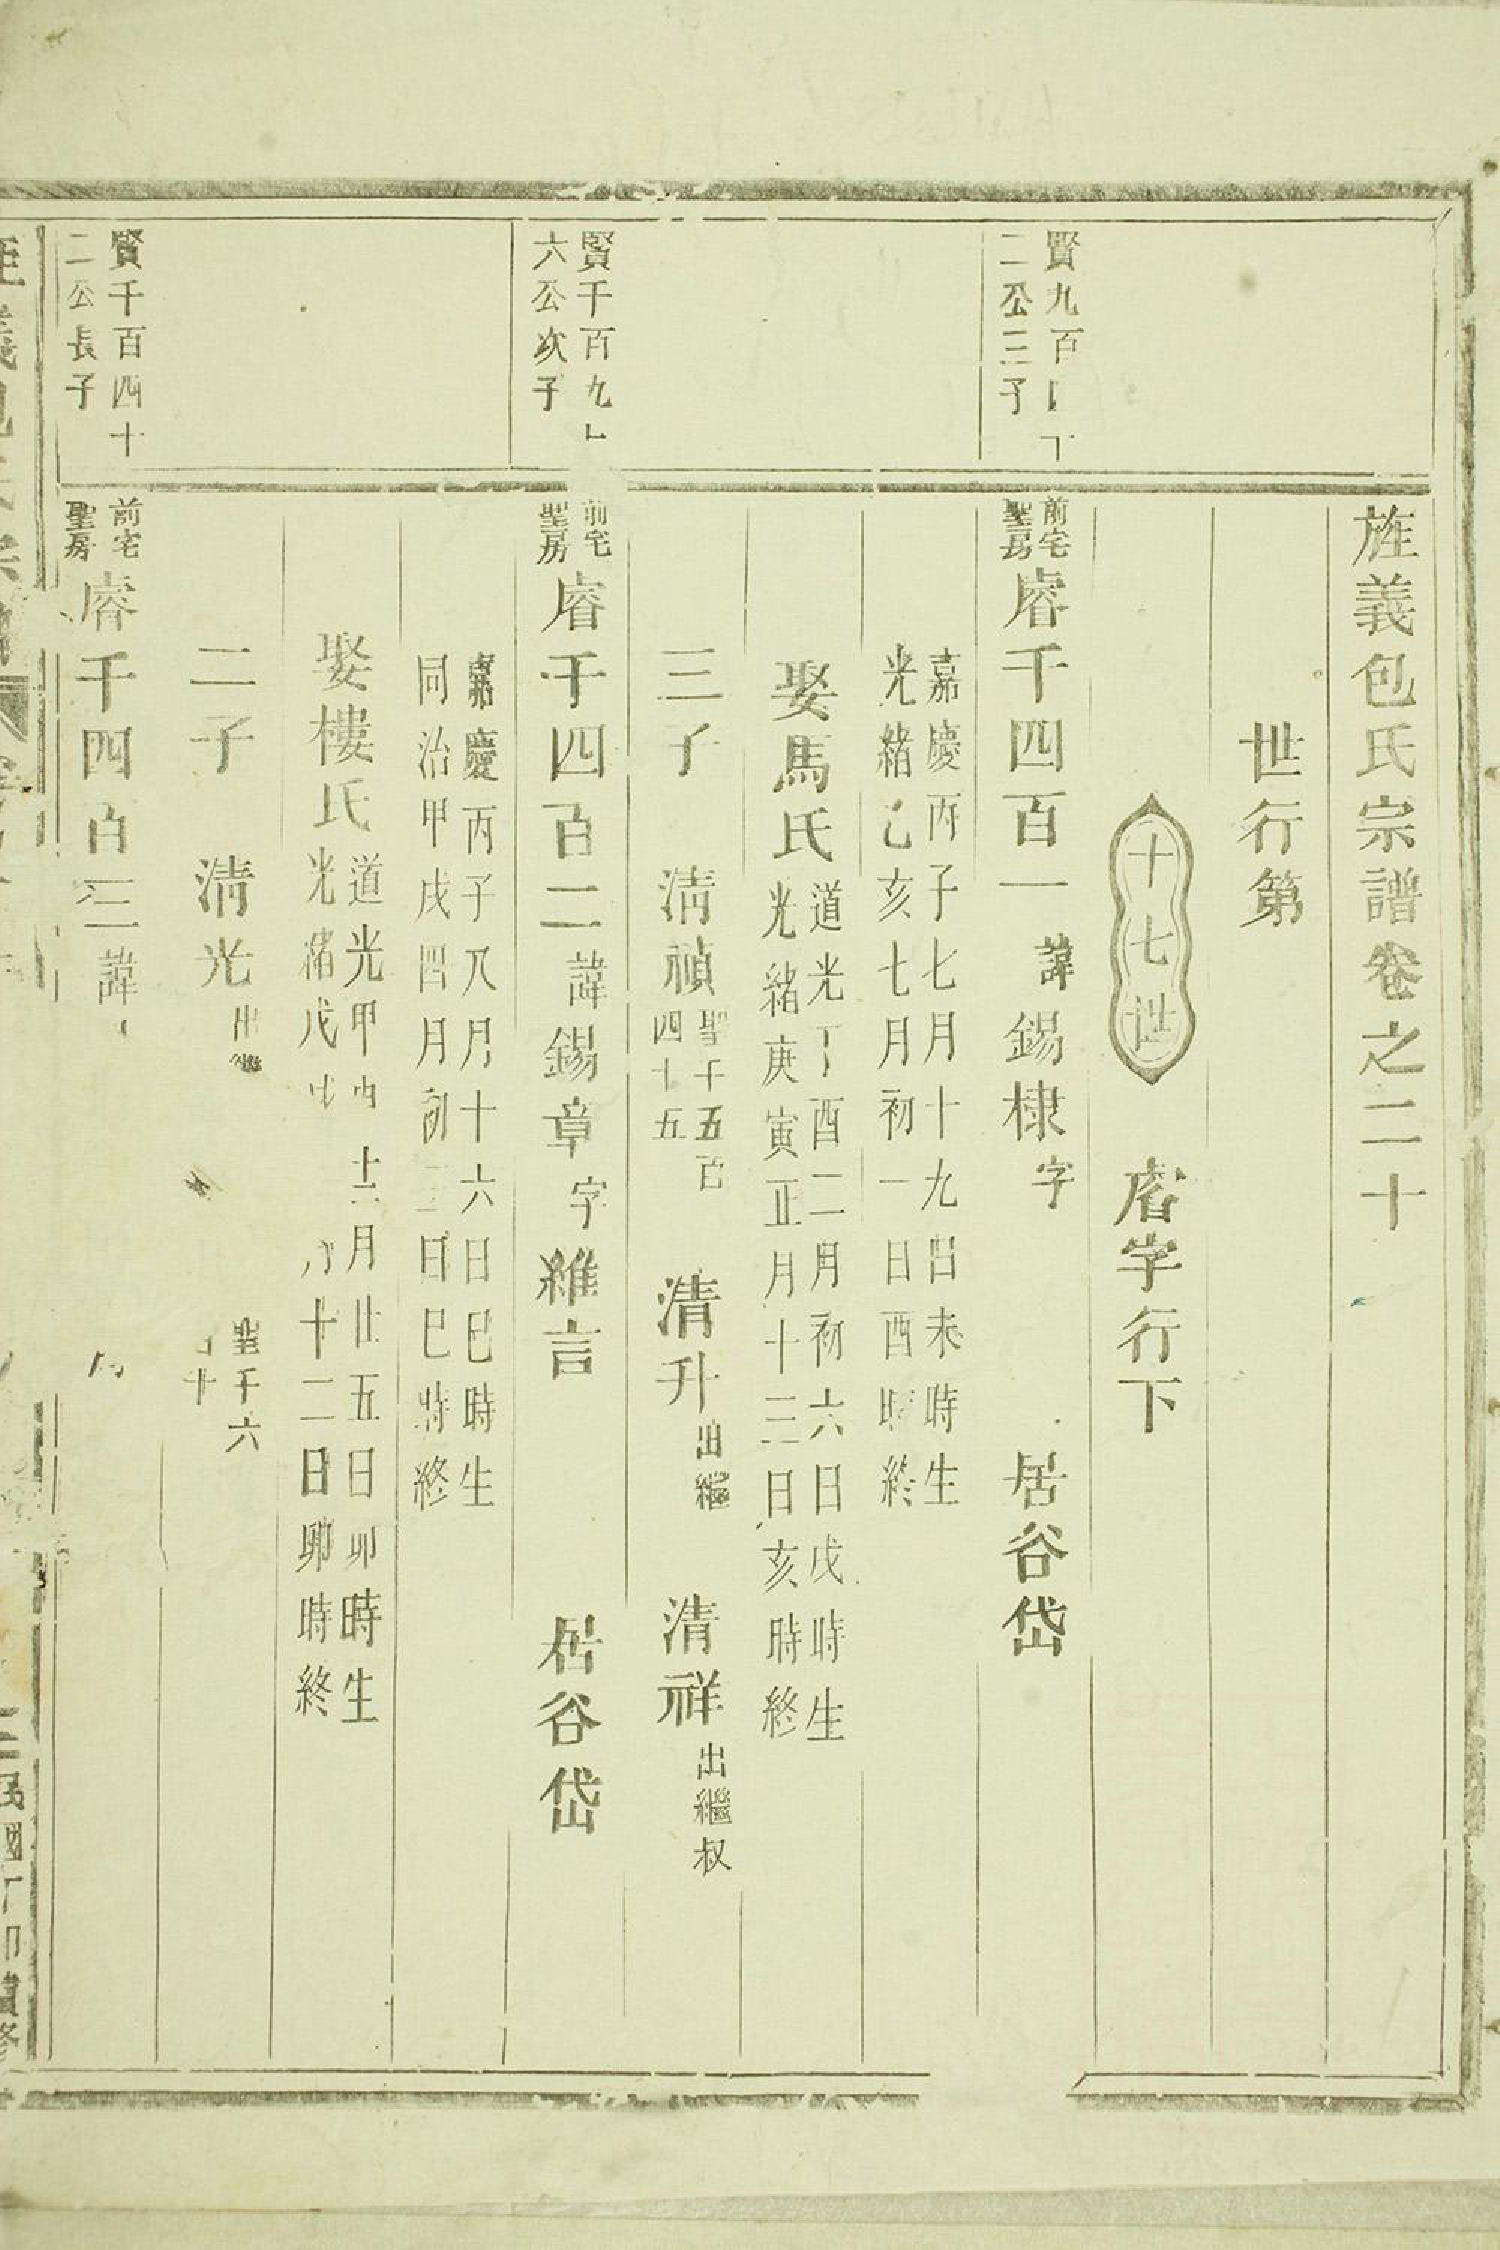 旌義包氏宗譜卷之二十
世行第
十七世 睿字行下
賢九百
二公三子
前宅
聖房
睿千四百一 諱 錫棣 字 居谷岱
嘉慶丙子七月十九日未時生
光緒乙亥七月初一日酉時終
娶馬氏
道光丁酉二月初六日戌時生
光緒庚寅正月十三日亥時終
三子 清禎 聖千五百
四十五
清升 出繼 清祥 出繼叔
賢千百九
六公次子
前宅
聖房
睿千四百二 諱 錫章 字 維言 居谷岱
嘉慶丙子八月十六日巳時生
同治甲戌四月初 日巳時終
娶樓氏
道光甲 十 月廿五日卯時生
光緒戊 十二日卯時終
二子 清光 出繼
聖千六
十
賢千百四十
二公長子
前宅
聖房
睿千四百三 諱
民國丁卯續修